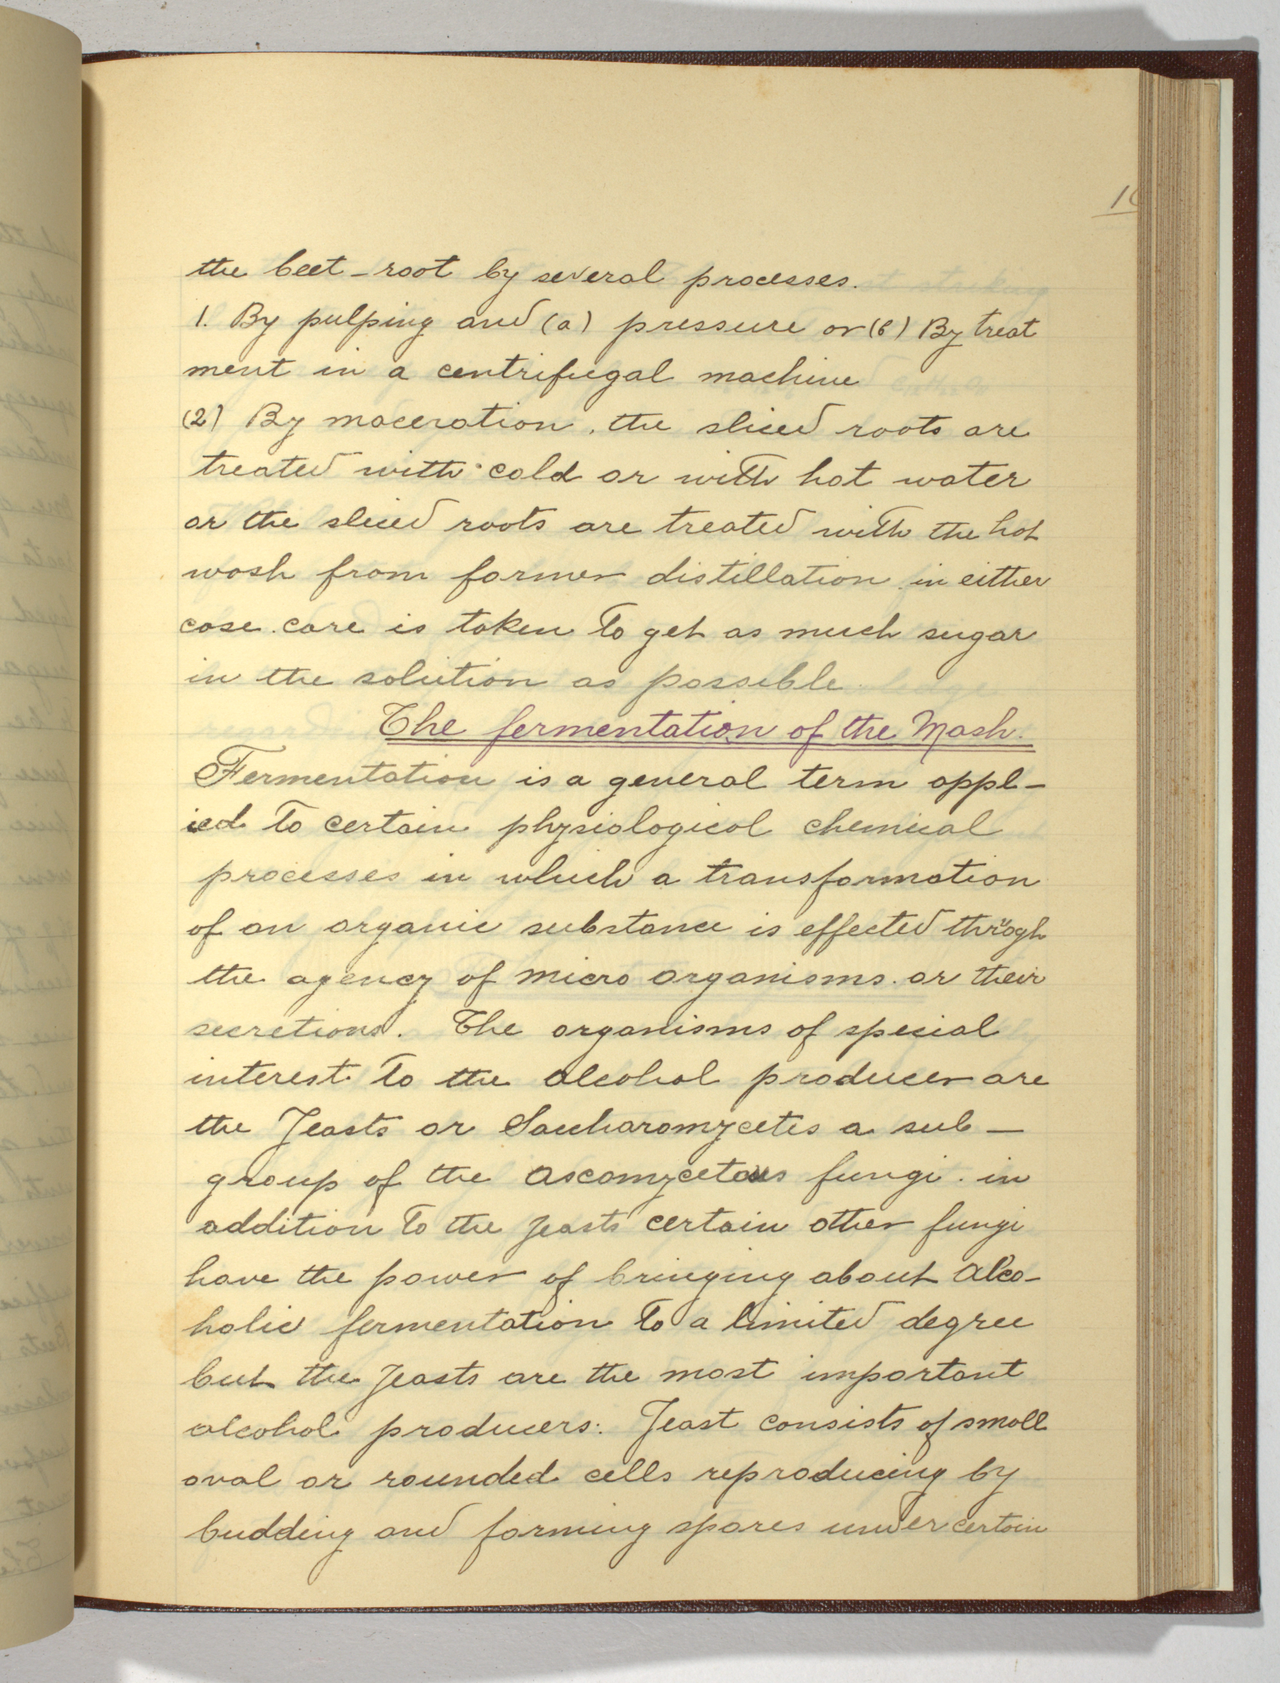 the beet-root by several processes.
1. By pulping and (a) pressure or (b) By treat
ment in a centrifugal machine
(2) By maceration, the sliced roots are
treated with cold or with hot water
or the sliced roots are treated with the hot
wash from former distillation in either
case care is taken to get as much sugar
in the solution as possible
The fermentation of the Mash.
Fermentation is a general term appl-
ied to certain physiological chemical
processes in which a transformation
of an organic substance is effected through
the agency of micro organisms or their
secretions. The organisms of special
interest to the alcohol producer are
the Yeasts or Saccharomycetes a sub-
group of the ascomycetous fungi. in
addition to the yeasts certain other fungi
have the power of bringing about alco-
holic fermentation to a limited degree
but the yeasts are the most important
alcohol producers. Yeast consists of small
oval or rounded cells reproducing by
budding and forming spores under certain